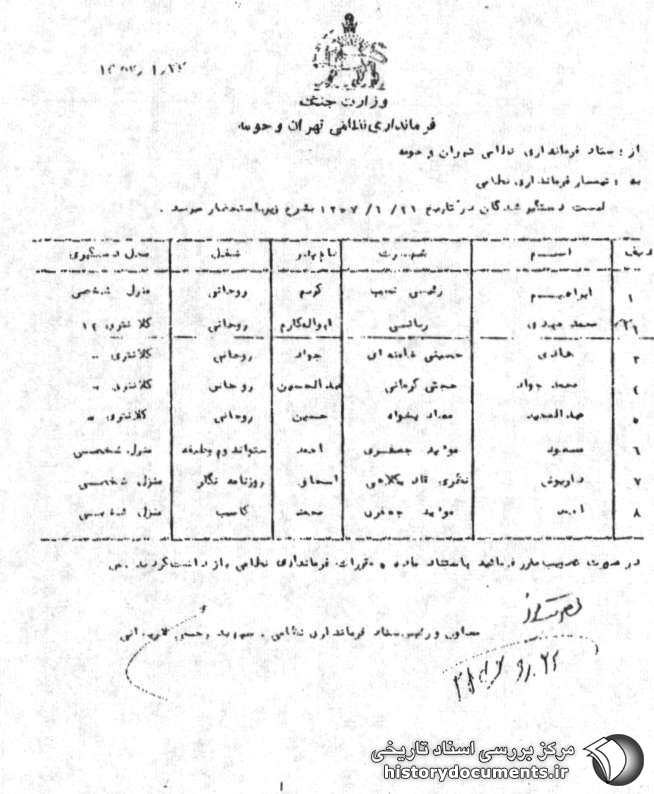 وزارت جنگ
فرمانداری نظامی تهران و حومه
از : ستاد فرمانداری نظامی تهران و حومه
به : تیمسار فرمانداری نظامی
لیست دستگیر شدگان در تاریخ ۲۱ /۶ /۱۳۵۷ بشرح زیر باستحضار میرسد .
ردیف اسم شهرت نام پدر شغل محل دستگیری
۱ ابراهیم رئیسی کریم روحانی منزل شخصی
۲ محمد مهدی ربانی ابوالمکارم روحانی کلانتری ۱۲
۳ هادی حسینی خامنه ای جواد روحانی کلانتری "
۴ محمد جواد حجتی کرمانی عبدالحسین روحانی کلانتری "
۵ عبدالمجید معادیخواه حسین روحانی کلانتری "
۶ مسعود احمد ستواندوم وظیفه منزل شخصی
۷ داریوش اسحاق روزنامه نگار منزل شخصی
۸ امید جعفری محمد کاسب منزل شخصی
در صورت تصویب مقرر فرمائید باستناد ماده ۵ مقررات فرمانداری نظامی بازداشت گردند .
معاون و رئیس ستاد فرمانداری نظامی .
مرکز بررسی اسناد تاریخی
historydocuments.ir